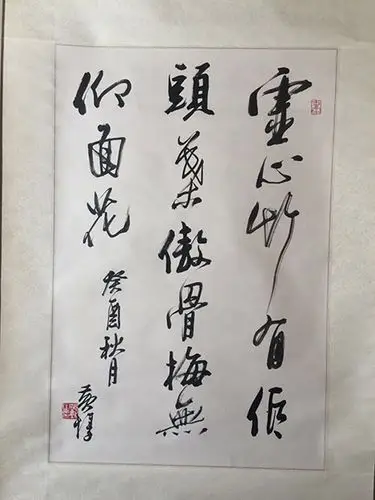 虚心竹有低
頭葉傲骨梅無
仰面花
癸酉秋月
黄惇